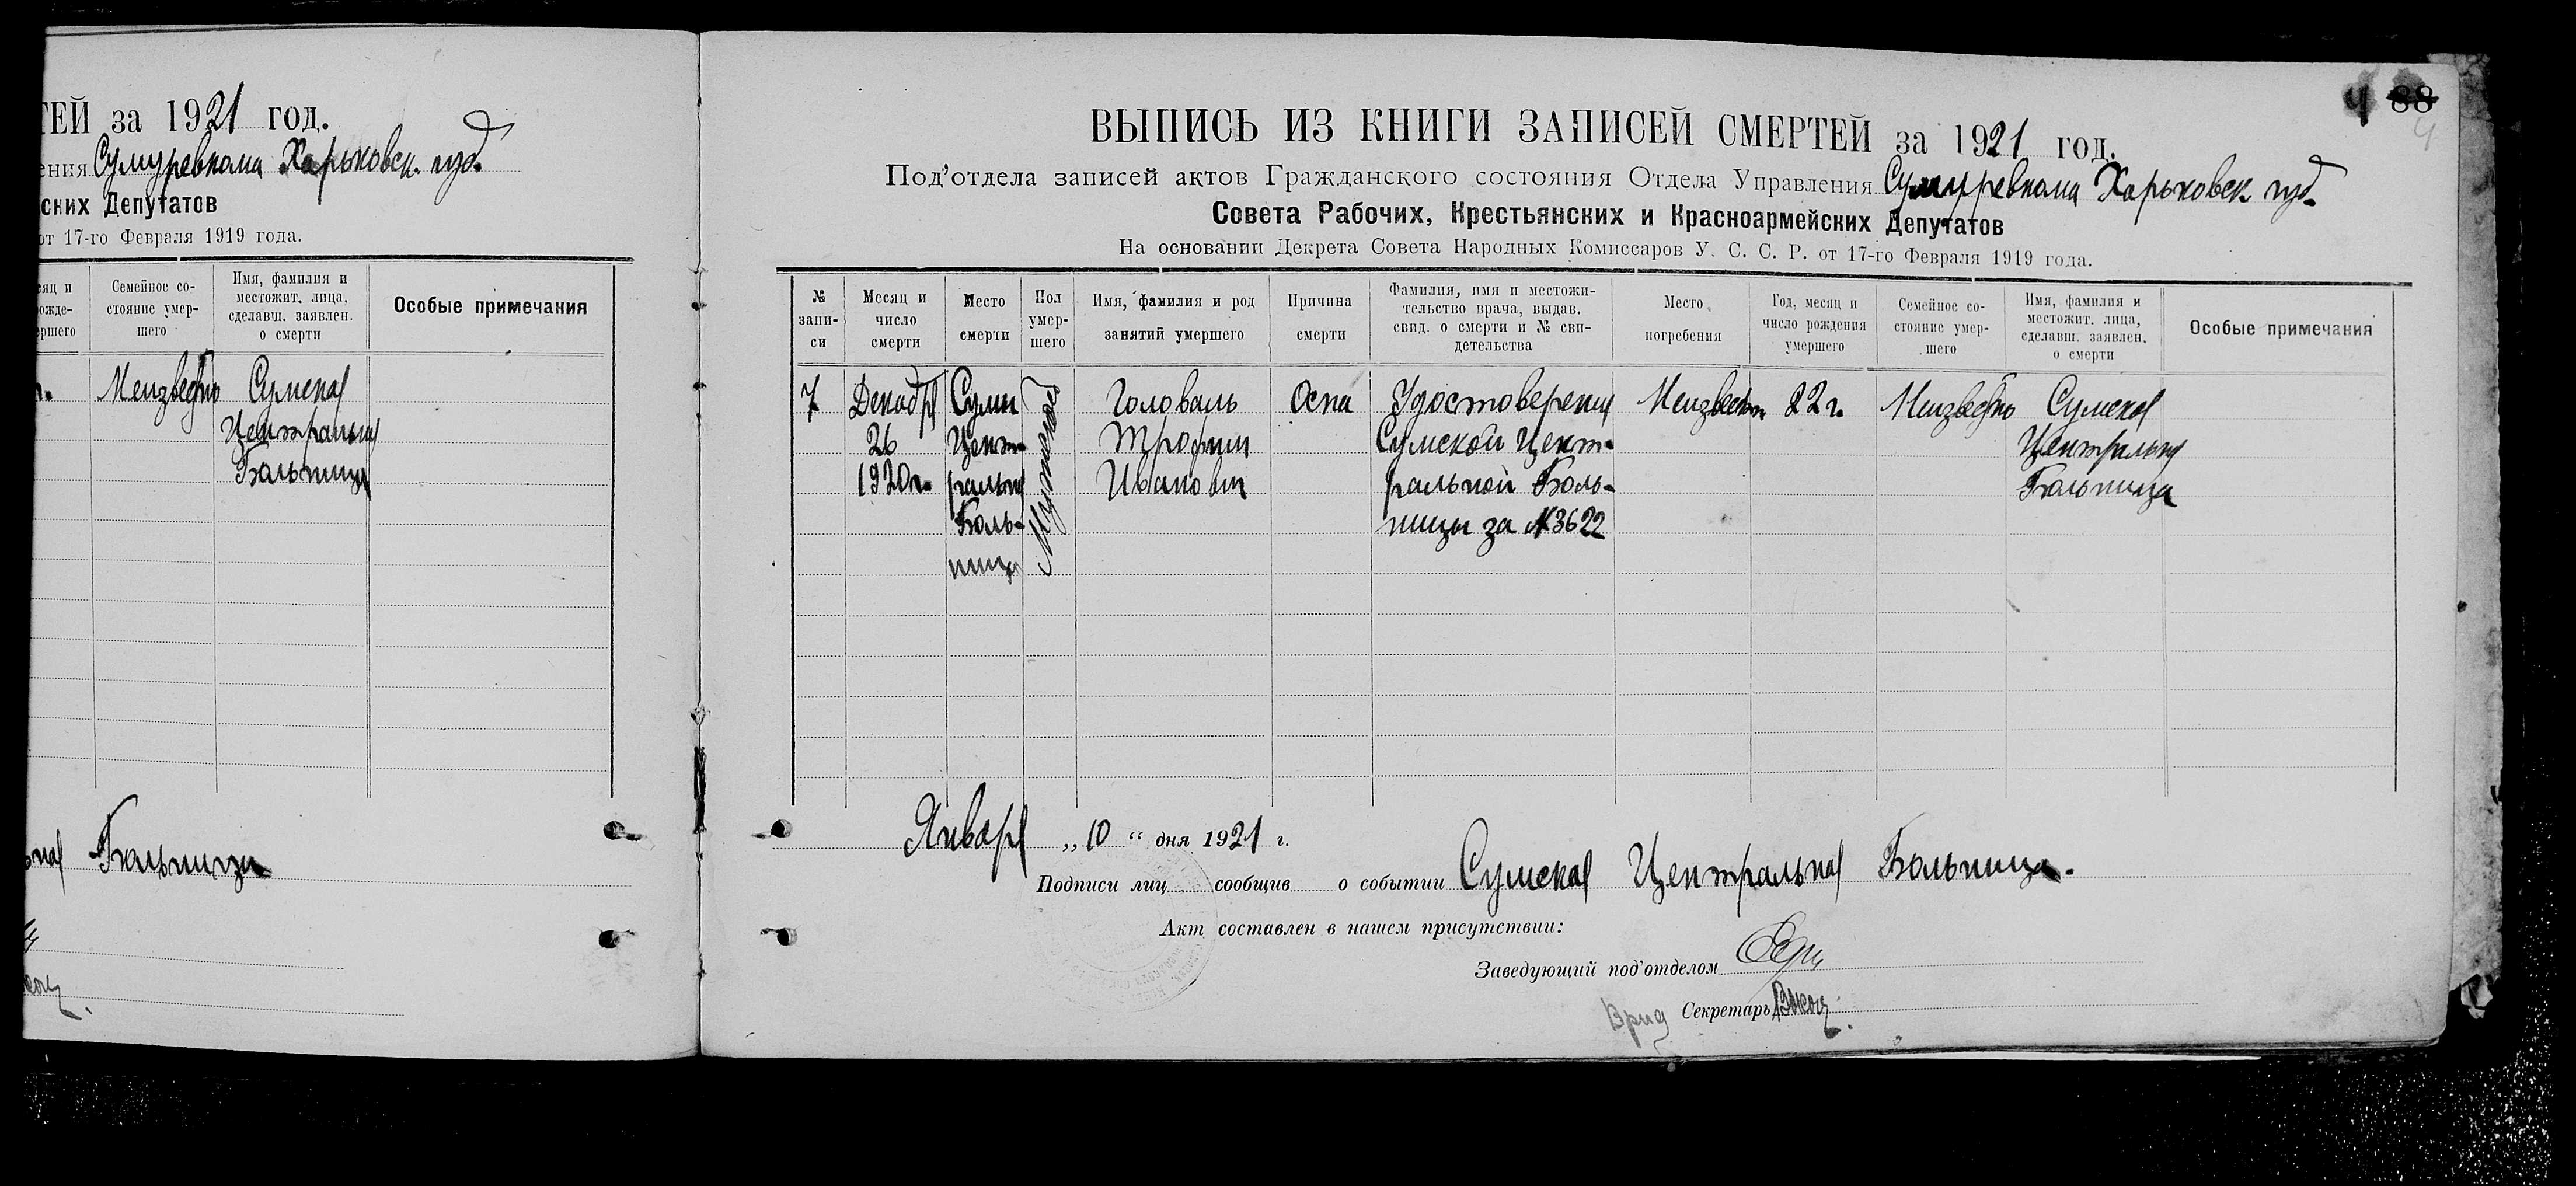 ТЕЙ за 1921 год.
ения Сумуревкома Харьковск. губ.
ских Депутатов
от 17-го Февраля 1919 года.
сяц и
ожде-
ершего
Семейное со-
стояние умер-
шего
Имя, фамилия и
местожит. лица,
сделавш. заявлен.
о смерти
Особые примечания
г.
Неизвестно
Сумская
Центральная
Больница
ная Больница
88
4
ВЫПИСЬ ИЗ КНИГИ ЗАПИСЕЙ СМЕРТЕЙ за 1921 год.
Под'отдела записей актов Гражданского состояния Отдела Управления Сумуревкома Харьковск губ.
Совета Рабочих, Крестьянских и Красноармейских Депутатов
На основании Декрета Совета Народных Комиссаров У. С. С. Р. от 17-го Февраля 1919 года.
№
запи-
си
Месяц и
число
смерти
Место
смерти
Пол
умер-
шего
Имя, фамилия и род
занятий умершего
Причина
смерти
Фамилия, имя и местожи-
тельство врача, выдав.
свид. о смерти и № сви-
детельства
Место
погребения
Год, месяц и
число рождения
умершего
Семейное со-
стояние умер-
шего
Имя, фамилия и
местожит. лица,
сделавш. заявлен.
о смерти
Особые примечания
7
Декабря
26
1920 г.
Сумы
Цент-
ральная
Боль-
ница
Мужской
Головаль
Трофим
Иванович
Оспа
Удостоверения
Сумской Цент-
ральной Боль-
ницы за № 3622
Неизвестн
22 г.
Неизвестно
Сумская
Центральная
Больница
Января „ 10 “ дня 1921 г.
Подписи лиц сообщив о событии Сумская Центральная Больница.
Акт составлен в нашем присутствии:
Заведующий под'отделом
Врид Секретарь